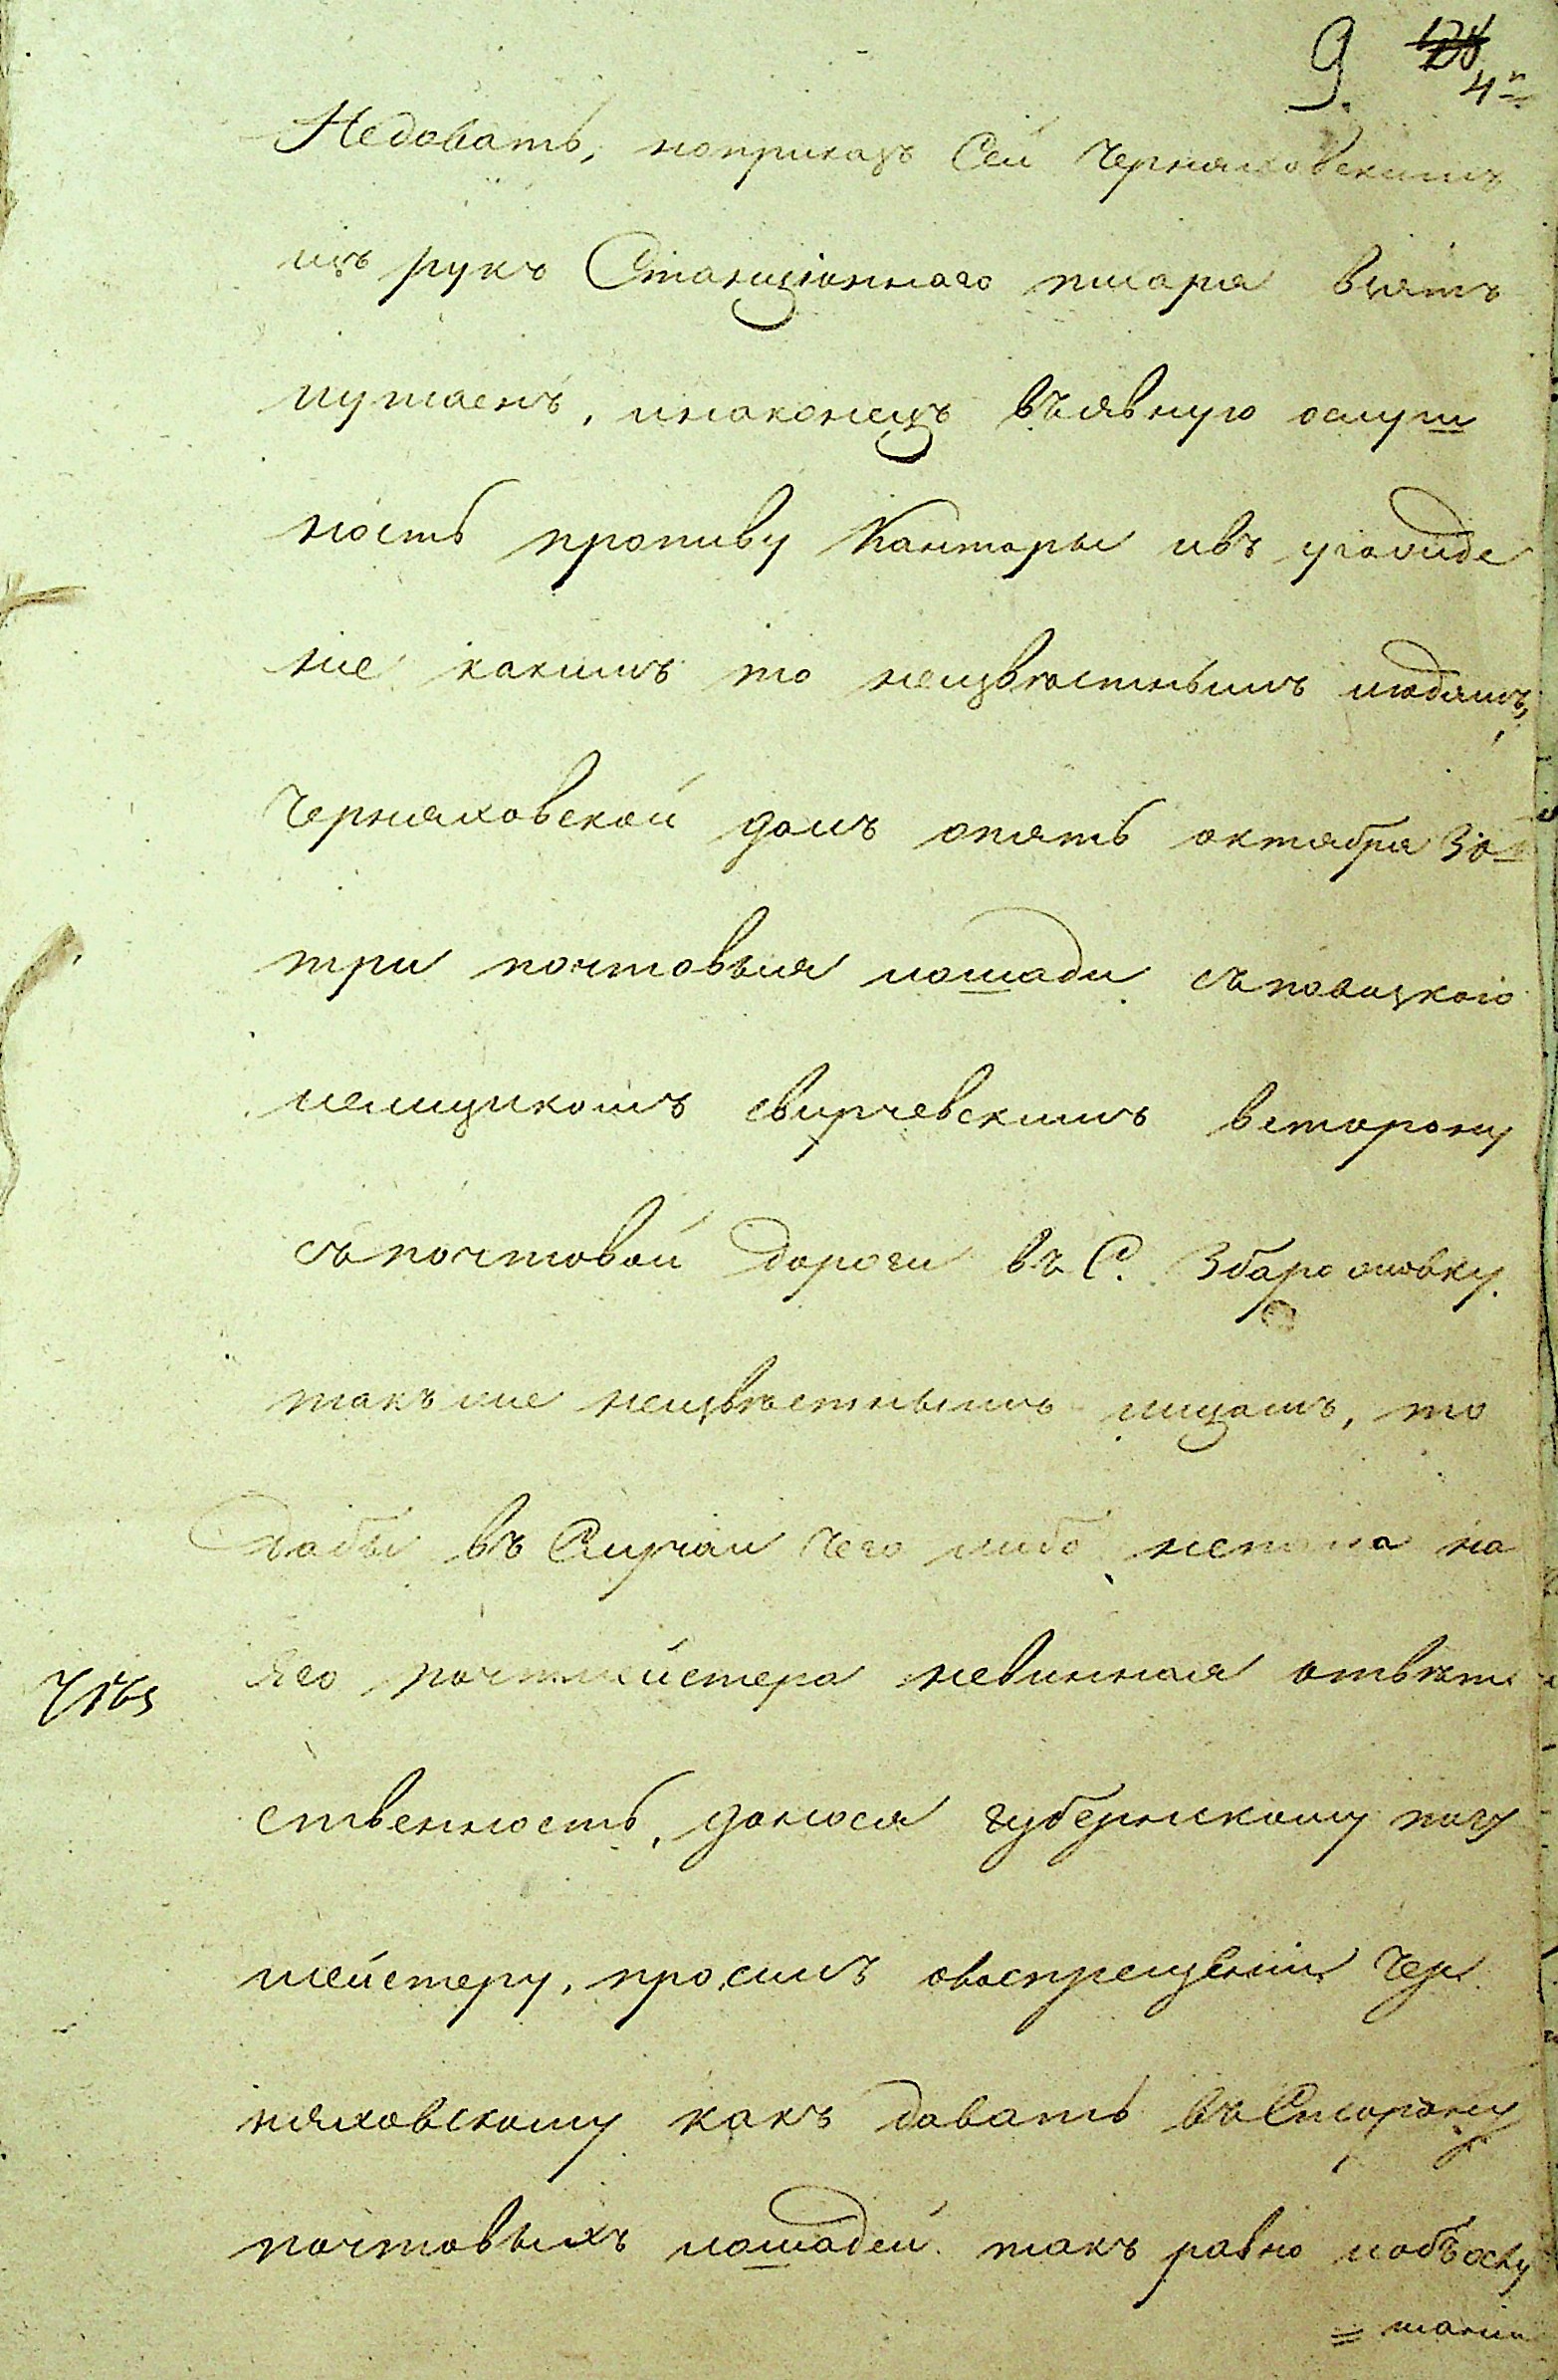 9. 128
4
Недавать,ноприказъ Сей Черняховскимъ
изъ рукъ Станціоннаго писаря взятъ
иутаенъ, инаконецъ въявную ослуш
ность противу Канторы ивъ угожде
ніе какимъ то неизвѣстнымъ людямъ,
Черняховской далъ опять октября 30
три почтовыя лошади съповацкого
мещикомъ свирчевскимъ встарону
съпочтовой дороги въ С. Збарошовку.
такъ же неизвѣстнымъ лицамъ, то
дабы въ Случаи чего либо непала на
Его почтмейстера невинная отвѣт
ственность, донося губернскому почт
мейстеру, проситъ овоспрещеніи Чер
няховскому какъ давать въСторону
почтовыхъ лошадей такъ равно иобъослу
= шаніи